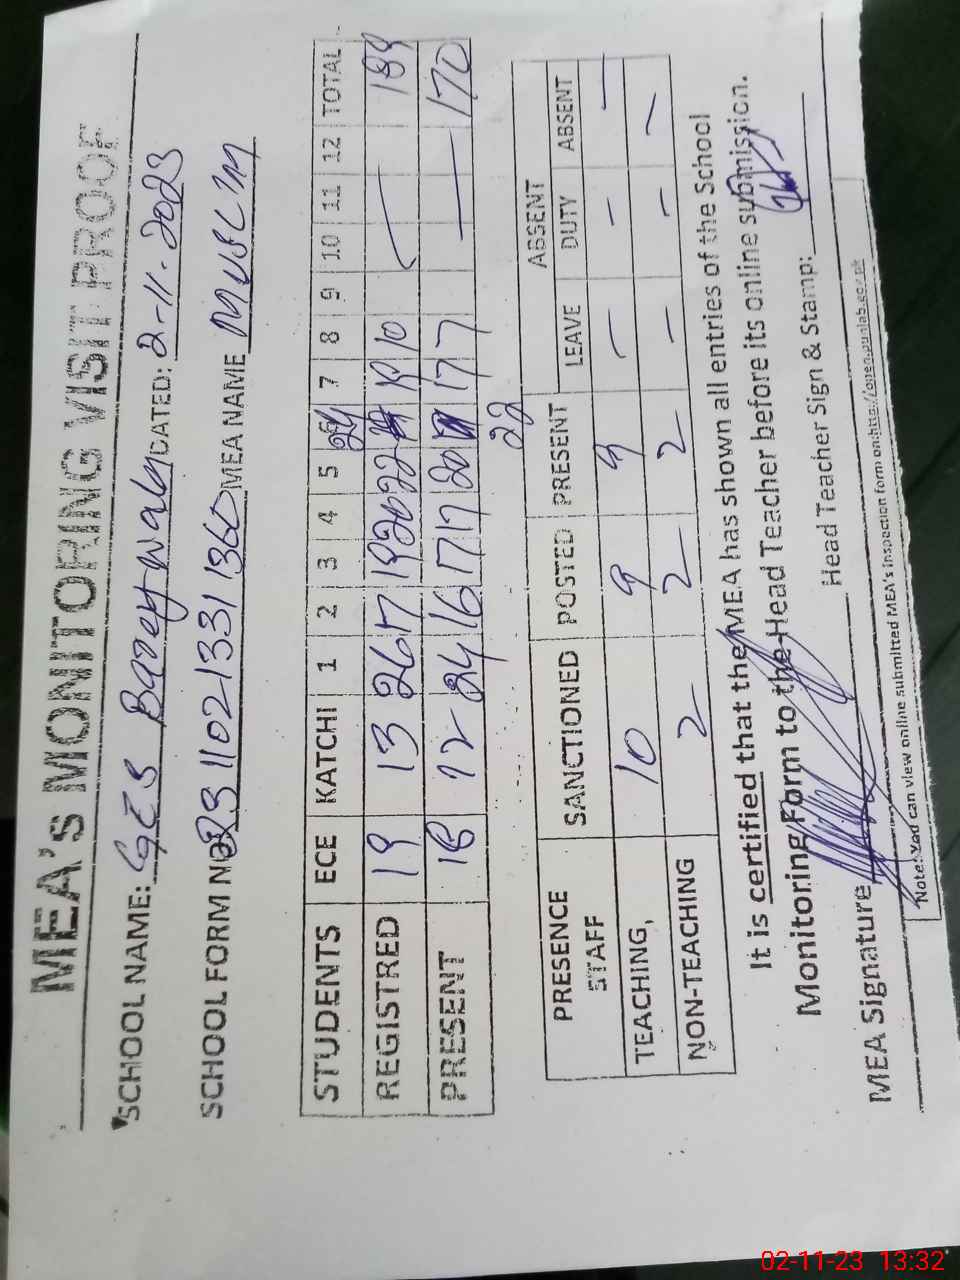 MEA'S MONITORING VISIT PROOF
SCHOOL NAME: GES DATED: 2-11-2023
SCHOOL FORM NO MEA NAME MUSLIM
STUDENTS ECE KATCHI 1 2 3 4 5 7 8 9 10 11 12 TOTAL
REGISTRED 19 13 26 17 19 20 22 19 10 — 189
PRESENT 18 12 24 16 17 17 20 17 7 — 170
22
ABSENT
PRESENCE STAFF SANCTIONED POSTED PRESENT LEAVE DUTY ABSENT
TEACHING, 10 9 9 — — —
NON-TEACHING 2 2 2 — — —
It is certified that the MEA has shown all entries of the School
Monitoring Form to the Head Teacher before its online submission.
MEA Signature Head Teacher Sign & Stamp:
Note: You can view online submitted MEA's inspection form on:http://open.punjab.gov.pk
02-11-23 13:32